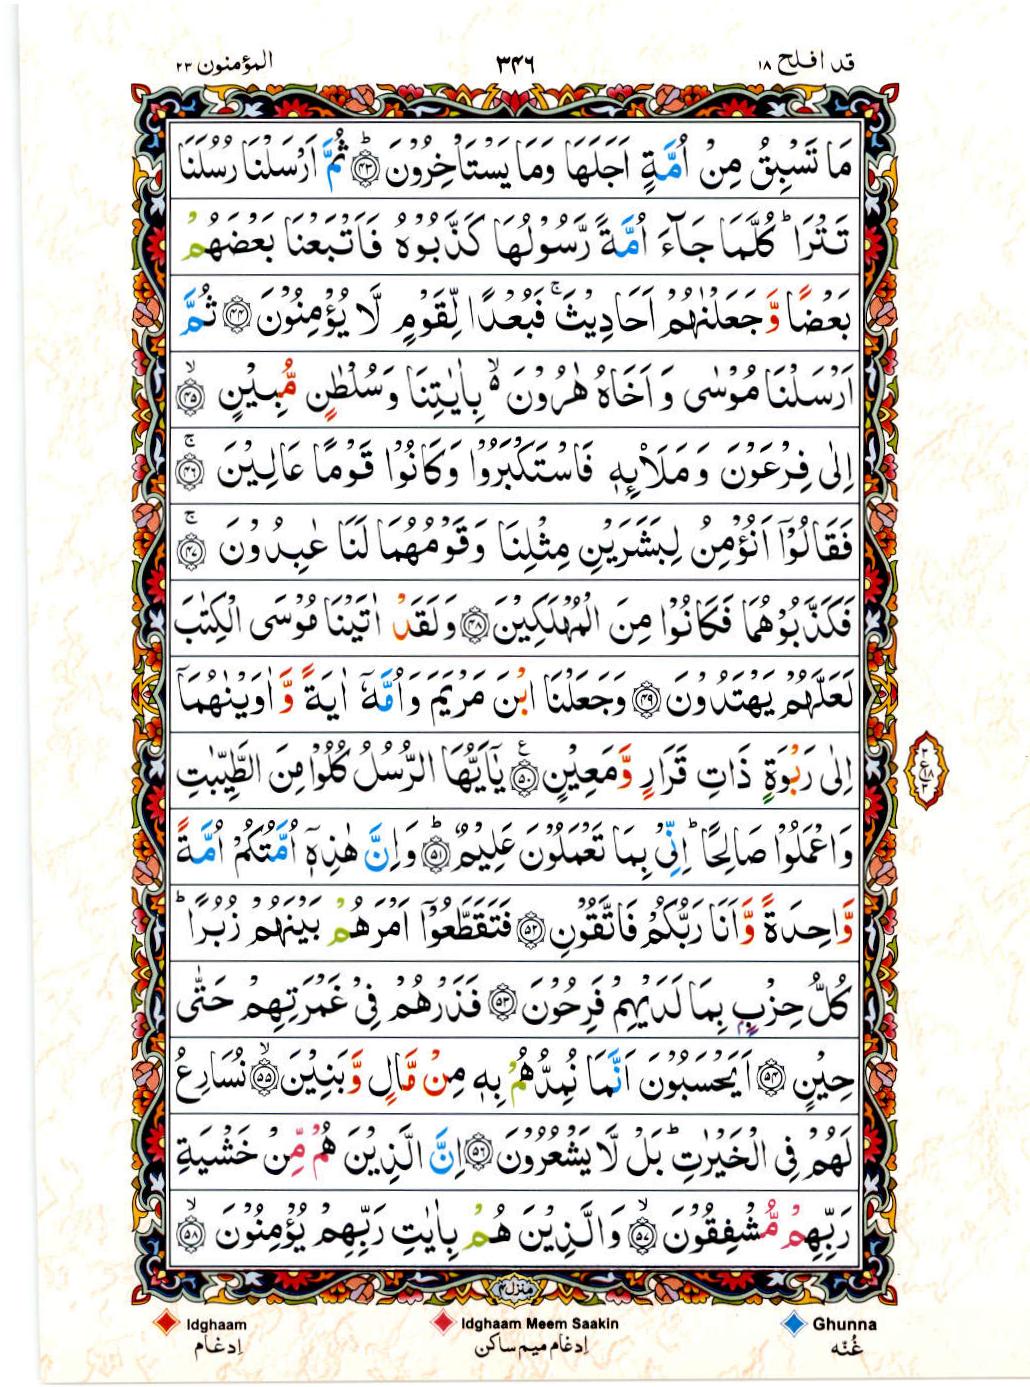 المؤمنون ٢٣ ٣٤٦ قد افلح ١٨
مَا تَسْبِقُ مِنْ اُمَّةٍ اَجَلَهَا وَمَا يَسْتَاْخِرُوْنَ ؕ۴۳ ثُمَّ اَرْسَلْنَا رُسُلَنَا
تَتْرَا ؕ كُلَّمَا جَآءَ اُمَّةً رَّسُوْلُهَا كَذَّبُوْهُ فَاَتْبَعْنَا بَعْضَهُمْ
بَعْضًا وَّجَعَلْنٰهُمْ اَحَادِيْثَ ۚ فَبُعْدًا لِّقَوْمٍ لَّا يُؤْمِنُوْنَ ۴۴ ثُمَّ
اَرْسَلْنَا مُوْسٰى وَاَخَاهُ هٰرُوْنَ ۙ۬ بِاٰيٰتِنَا وَسُلْطٰنٍ مُّبِيْنٍ ۙ۴۵
اِلٰى فِرْعَوْنَ وَمَلَا۟ئِهٖ فَاسْتَكْبَرُوْا وَكَانُوْا قَوْمًا عَالِيْنَ ۚ۴۶
فَقَالُوْۤا اَنُؤْمِنُ لِبَشَرَيْنِ مِثْلِنَا وَقَوْمُهُمَا لَنَا عٰبِدُوْنَ ۚ۴۷
فَكَذَّبُوْهُمَا فَكَانُوْا مِنَ الْمُهْلَكِيْنَ ۴۸ وَلَقَدْ اٰتَيْنَا مُوْسَى الْكِتٰبَ
لَعَلَّهُمْ يَهْتَدُوْنَ ۴۹ وَجَعَلْنَا ابْنَ مَرْيَمَ وَاُمَّهٗۤ اٰيَةً وَّاٰوَيْنٰهُمَاۤ
اِلٰى رَبْوَةٍ ذَاتِ قَرَارٍ وَّمَعِيْنٍ ۵۰ ع يٰۤاَيُّهَا الرُّسُلُ كُلُوْا مِنَ الطَّيِّبٰتِ
وَاعْمَلُوْا صَالِحًا ؕ اِنِّيْ بِمَا تَعْمَلُوْنَ عَلِيْمٌ ؕ۵۱ وَاِنَّ هٰذِهٖۤ اُمَّتُكُمْ اُمَّةً
وَّاحِدَةً وَّاَنَا رَبُّكُمْ فَاتَّقُوْنِ ۵۲ فَتَقَطَّعُوْۤا اَمْرَهُمْ بَيْنَهُمْ زُبُرًا ؕ
كُلُّ حِزْبٍۭ بِمَا لَدَيْهِمْ فَرِحُوْنَ ۵۳ فَذَرْهُمْ فِيْ غَمْرَتِهِمْ حَتّٰى
حِيْنٍ ۵۴ اَيَحْسَبُوْنَ اَنَّمَا نُمِدُّهُمْ بِهٖ مِنْ مَّالٍ وَّبَنِيْنَ ۙ۵۵ نُسَارِعُ
لَهُمْ فِي الْخَيْرٰتِ ؕ بَلْ لَّا يَشْعُرُوْنَ ۵۶ اِنَّ الَّذِيْنَ هُمْ مِّنْ خَشْيَةِ
رَبِّهِمْ مُّشْفِقُوْنَ ۙ۵۷ وَالَّذِيْنَ هُمْ بِاٰيٰتِ رَبِّهِمْ يُؤْمِنُوْنَ ۙ۵۸
منزل ٤
Idghaam Idghaam Meem Saakin Ghunna
اِدغام اِدغام میم ساکن غُنّه